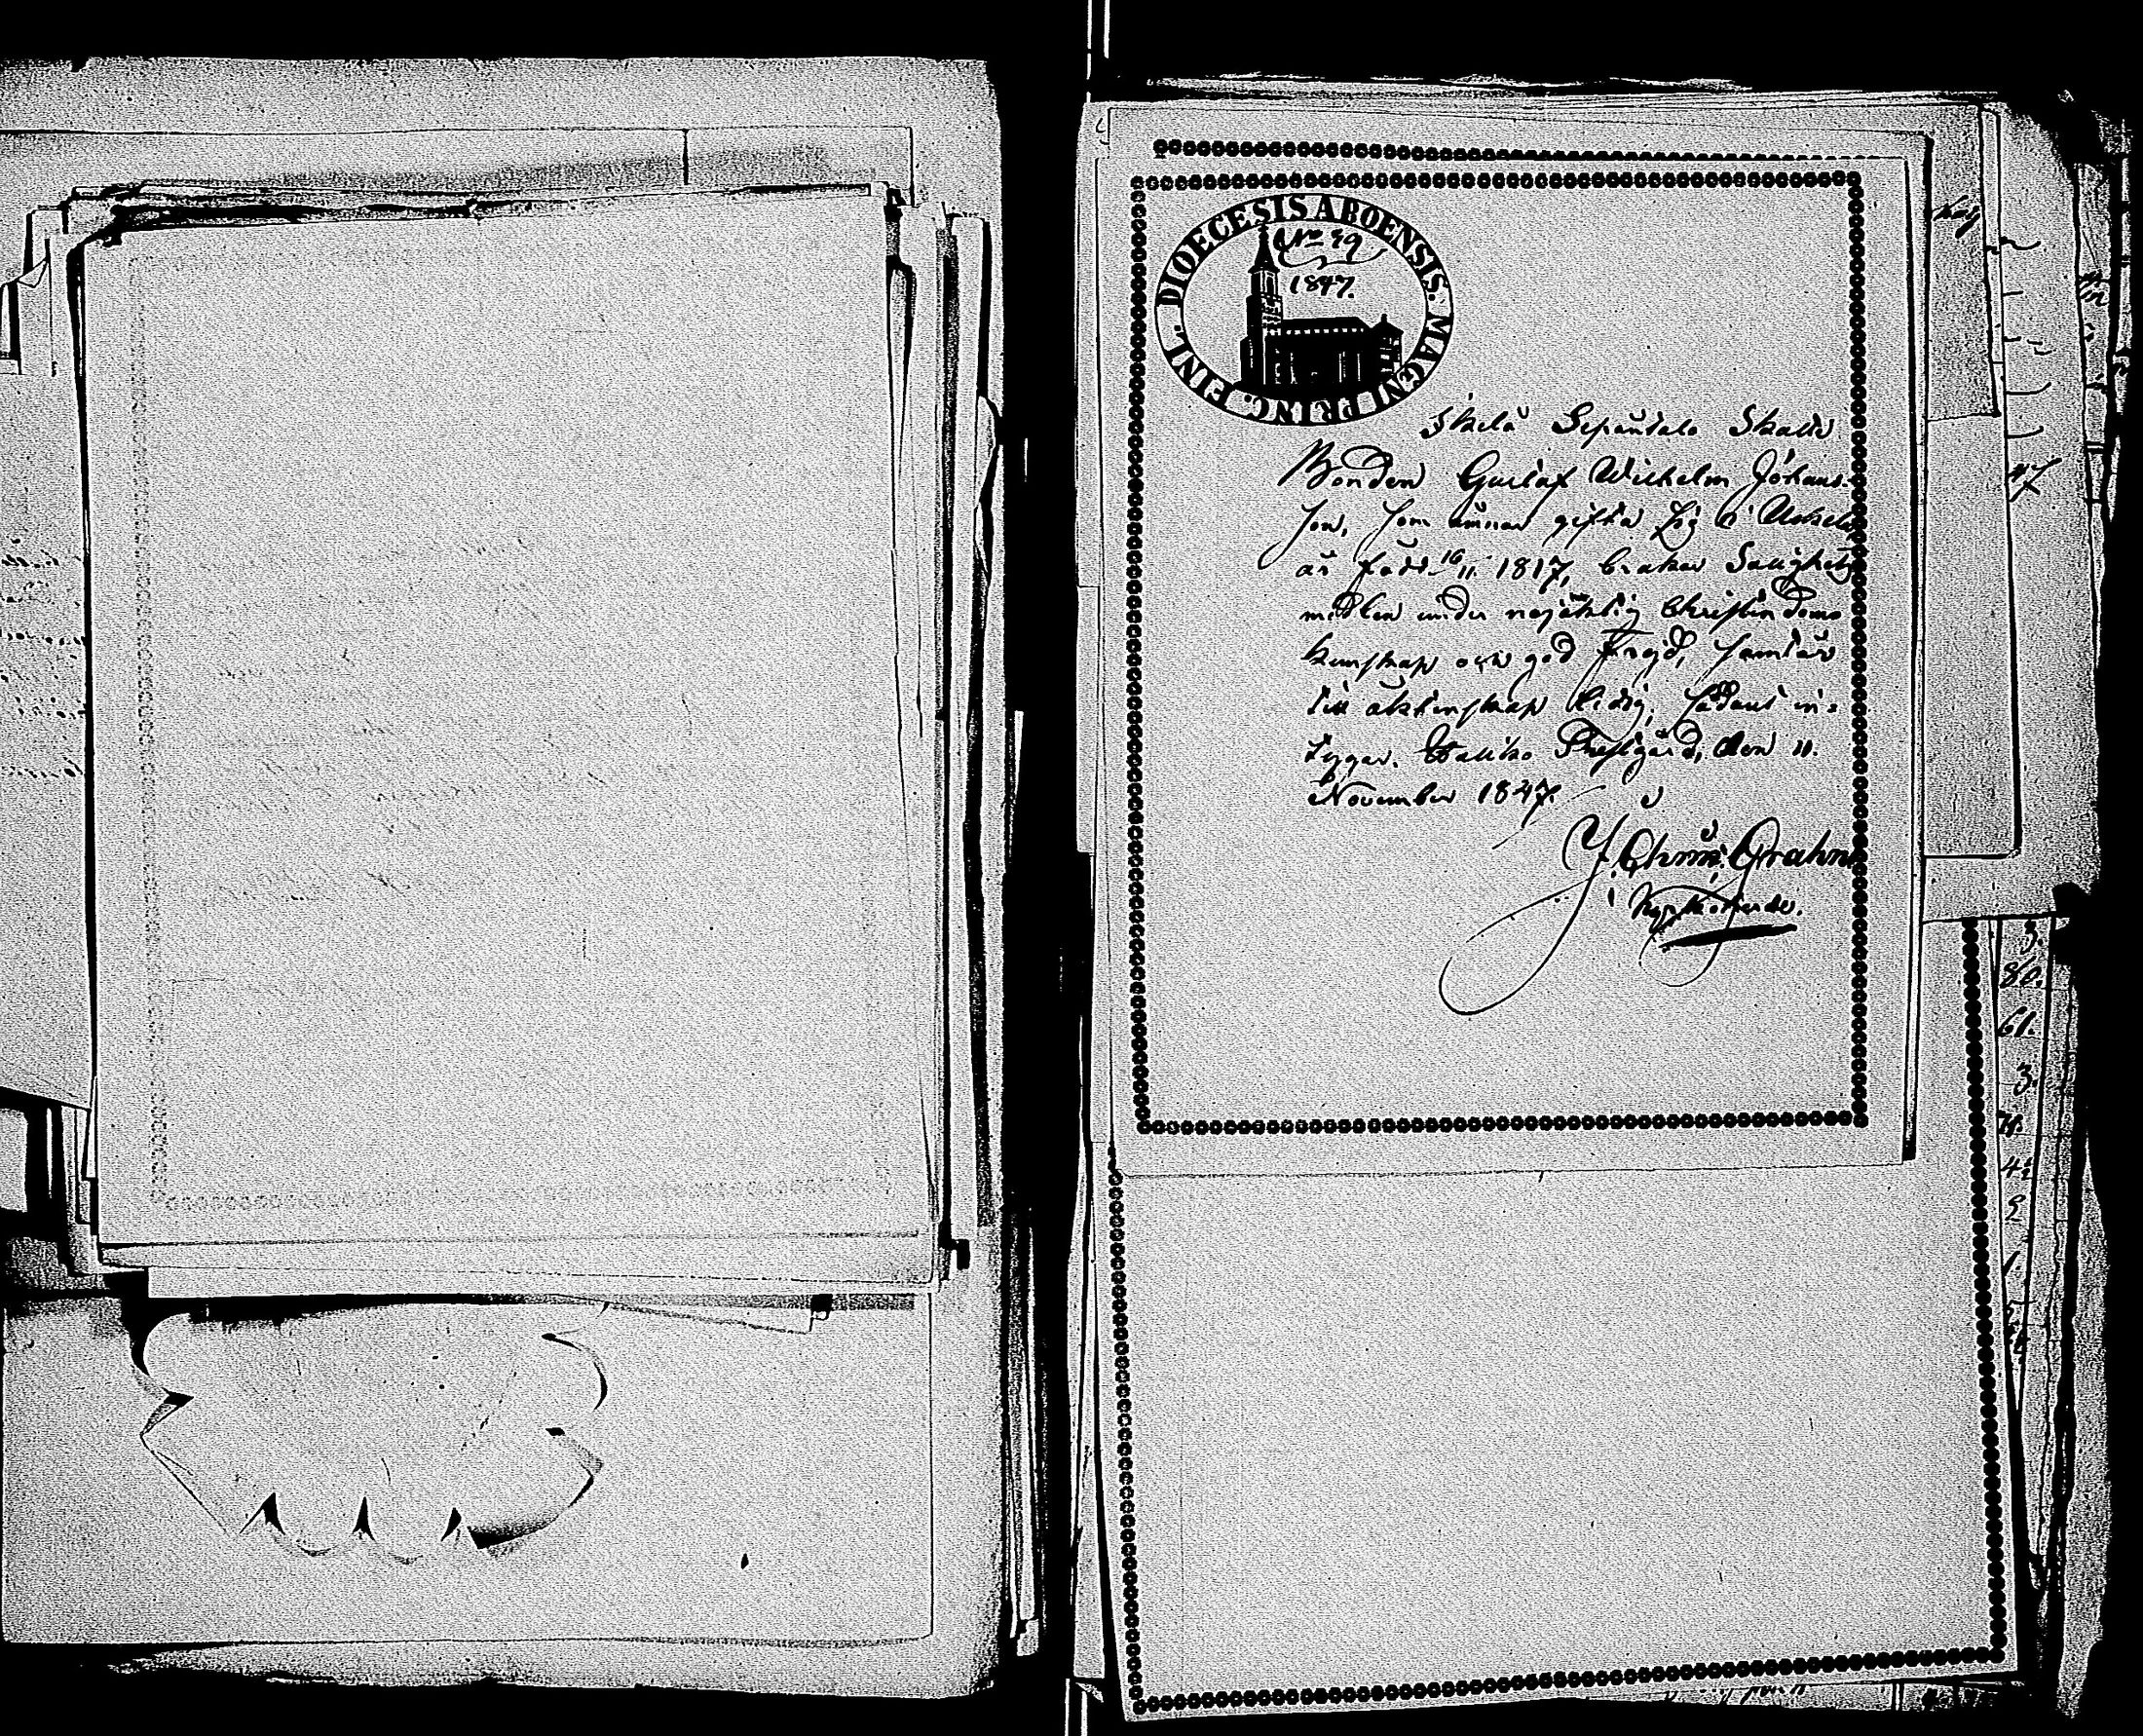 DIOECESIS ABOENSIS. MAGNI PRINC. FINL.
No 49
1847.
Skelä Sepänlalo Skatte
Bonden Gustaf Wilhelm Johans-
son, som ämnar gifta sig i Uskela
är född 16/11 1817, brukar Salighets
medlen under nöjaktig Christendoms
kunskap och god frejd, samt är
till äktenskap ledig. Sådant in-
tygar. Halikko Prestgård, den 11.
November 1847.
J. Chr: Grahn
Kyrkoherde.
80.
61.
3.